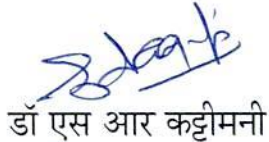 डॉ एस आर कट्टीमनी